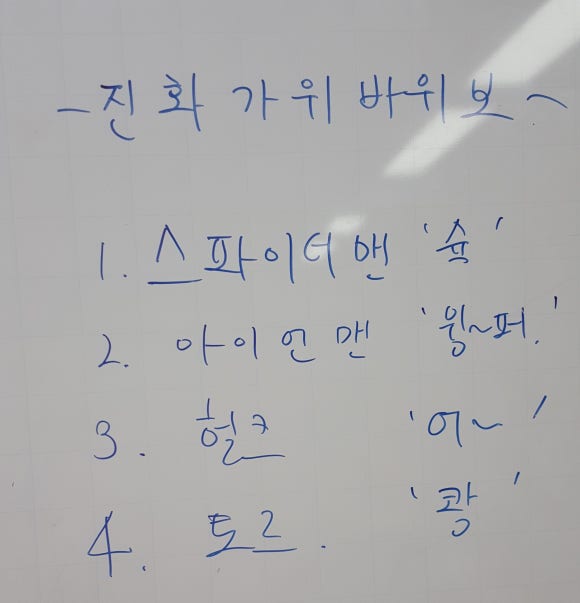 ~진화 가위바위보~
1. 스파이더맨 '슝'
2. 아이언맨 '윙~퍼.'
3. 헐크 '어~'
4. 토르. '쾅'